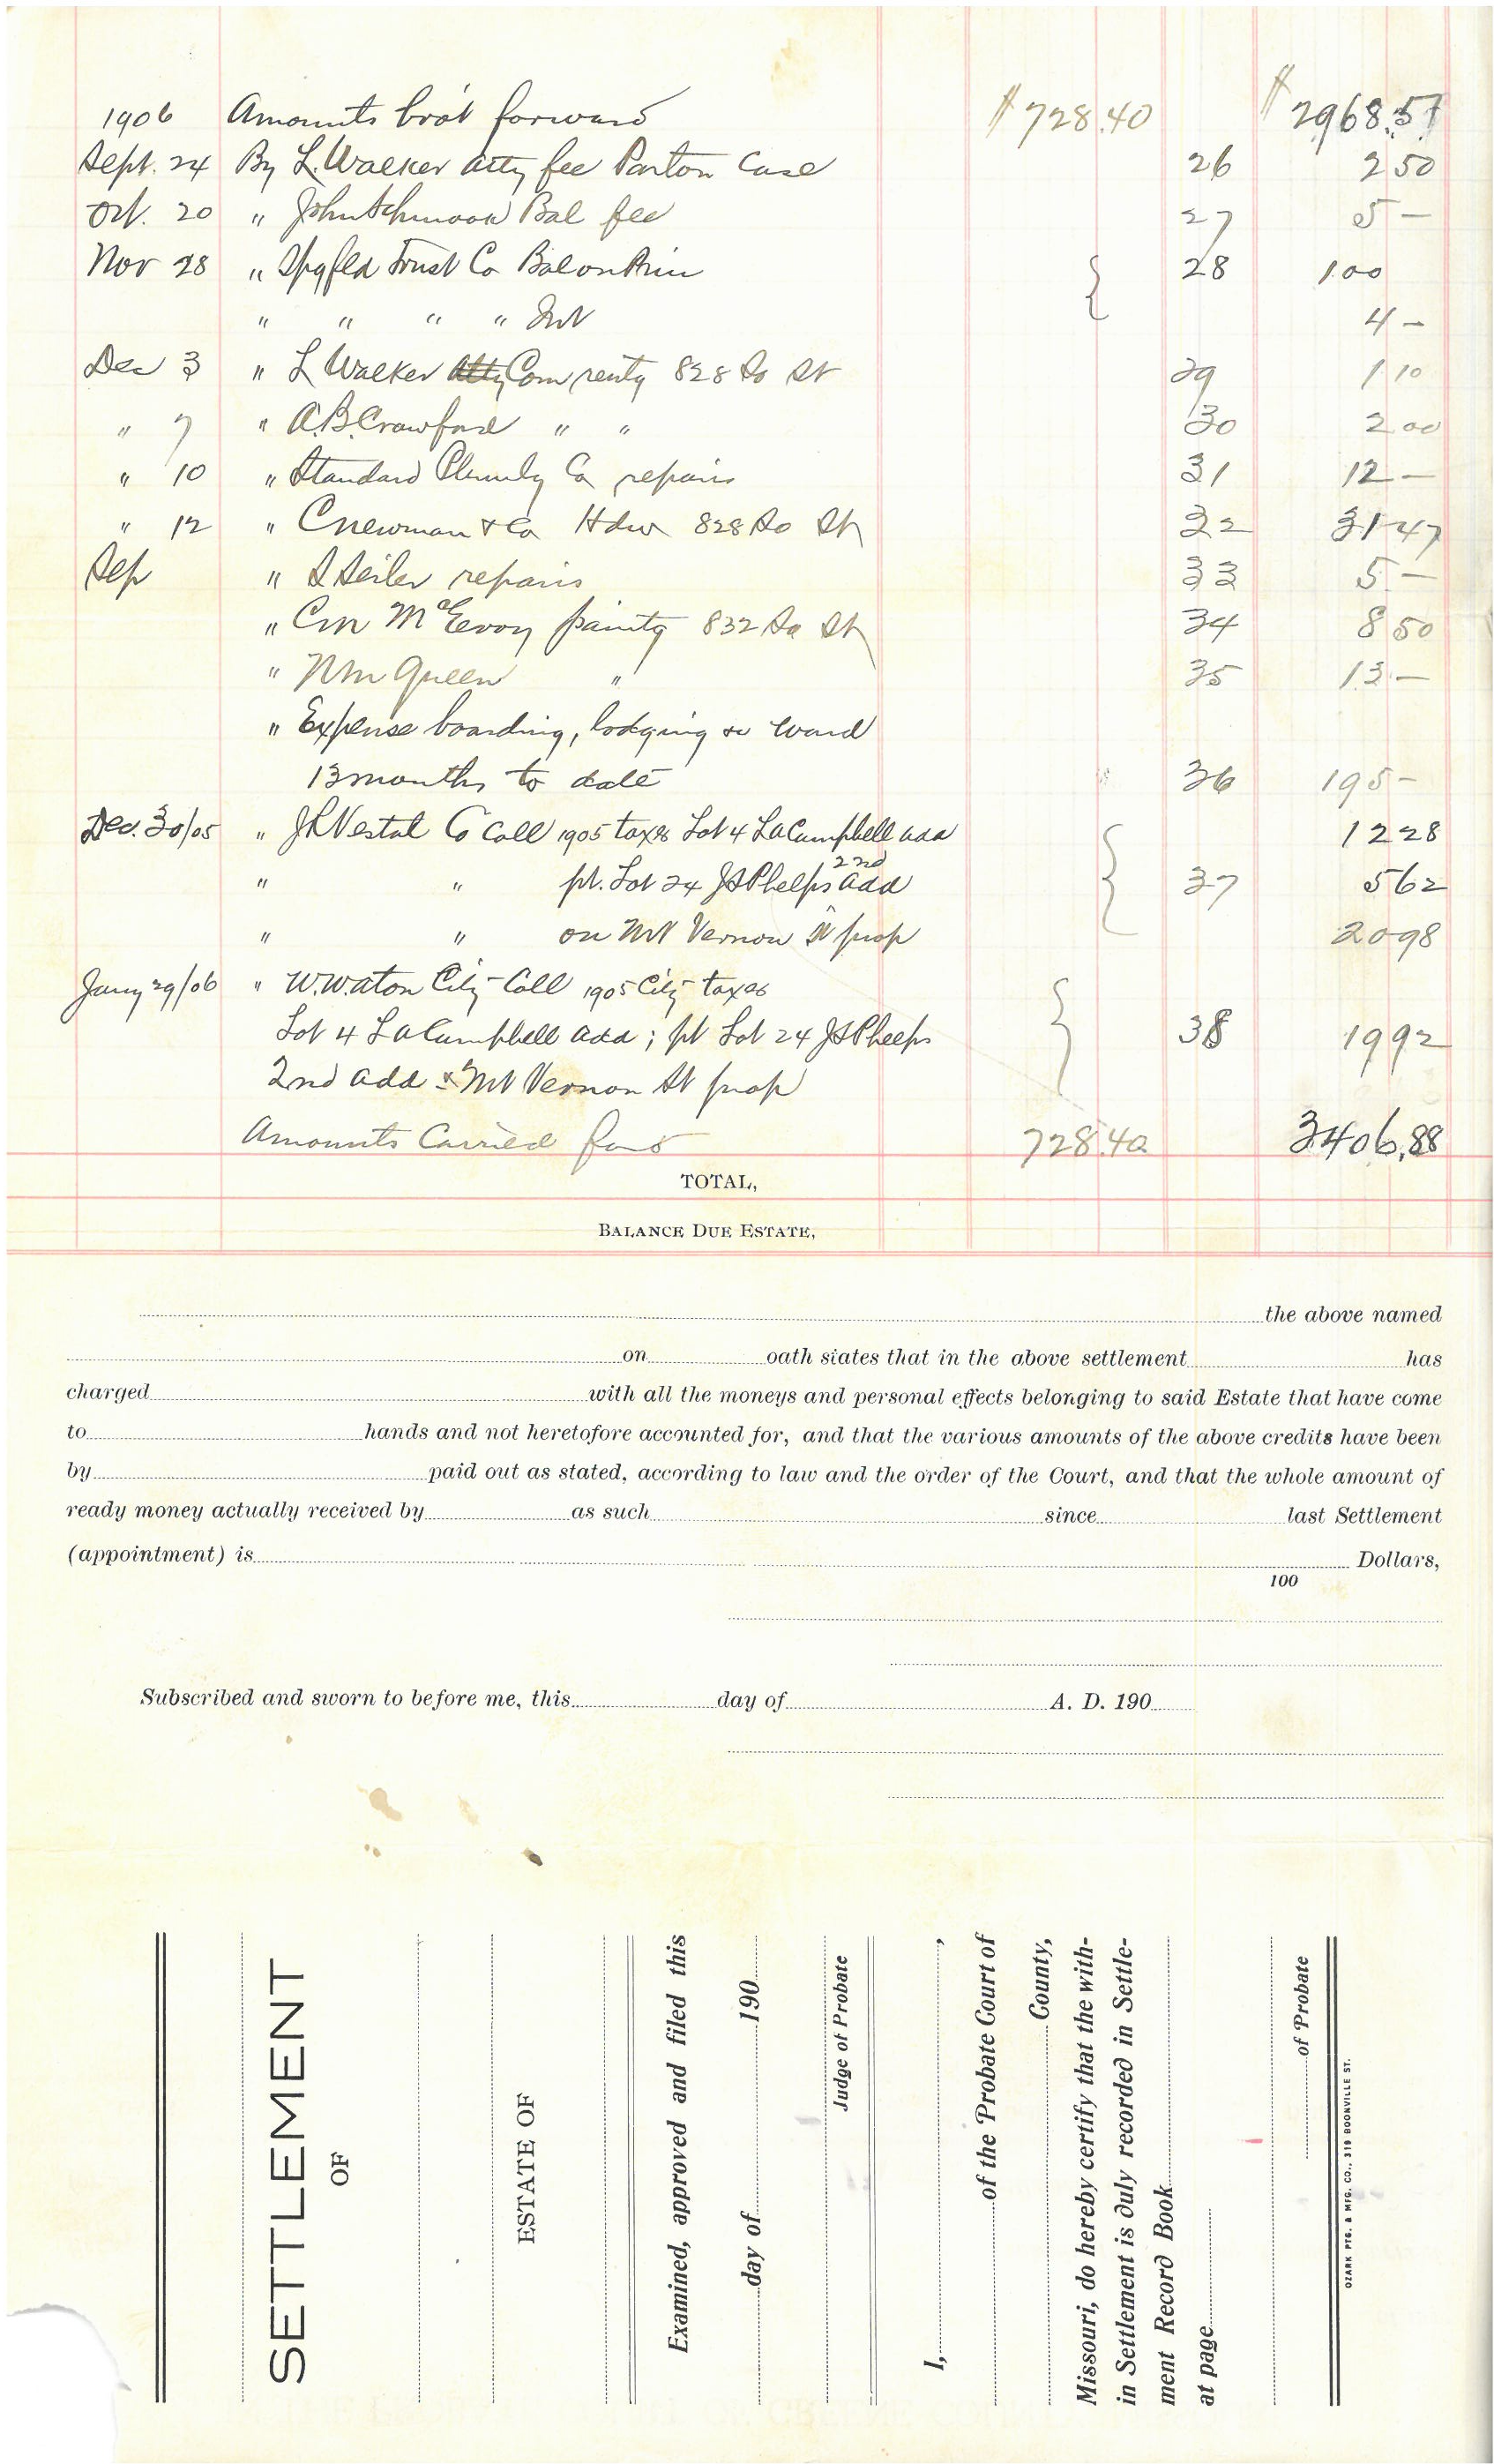 1906 Amounts bro't forward $728.40 $2968.57
Sept. 24 By L. Walker atty fee Parton Case 26 2 50
Oct. 20 " John Schmook Bal fee 27 5 —
Nov 28 " Spgfld Trust Co Bal on Prin 28 100
" " " " Int 4 —
Dec 3 " L Walker Com renty 828 So St 29 1 10
" 7 " A.B. Crawford " " 30 2 00
" 10 " Standard Plumbg Co repairs 31 12 —
" 12 " C Newman & Co Hdw 828 So St 32 31 47
Sep " S Seiler repairs 33 5 —
" Cm McEvoy paintg 832 So St 34 8 50
" Wm Queen " 35 13 —
" Expense boarding, lodging &c ward
13 months to date 36 195 —
Dec. 30/05 " J K Vestal Co Coll 1905 taxes Lot 4 LA Campbell add 12 28
" " pt. Lot 24 JS Phelps 2nd add 37 5 62
" " on Mt Vernon St prop 20 98
Jany 29/06 " W.W. aton City Coll 1905 City taxes
Lot 4 L A Campbell add; pt Lot 24 JS Phelps 38 19 92
2nd add & Mt Vernon St prop
Amounts Carried ford 728.40 3406.88
TOTAL,
BALANCE DUE ESTATE,
the above named
on oath states that in the above settlement has
charged with all the moneys and personal effects belonging to said Estate that have come
to hands and not heretofore accounted for, and that the various amounts of the above credits have been
by paid out as stated, according to law and the order of the Court, and that the whole amount of
ready money actually received by as such since last Settlement
(appointment) is Dollars,
100
Subscribed and sworn to before me, this day of A. D. 190
SETTLEMENT
OF
ESTATE OF
Examined, approved and filed this
day of 190
Judge of Probate
I, ,
of the Probate Court of
County,
Missouri, do hereby certify that the with-
in Settlement is duly recorded in Settle-
ment Record Book
at page
of Probate
OZARK PTG. & MFG. CO., 319 BOONVILLE ST.